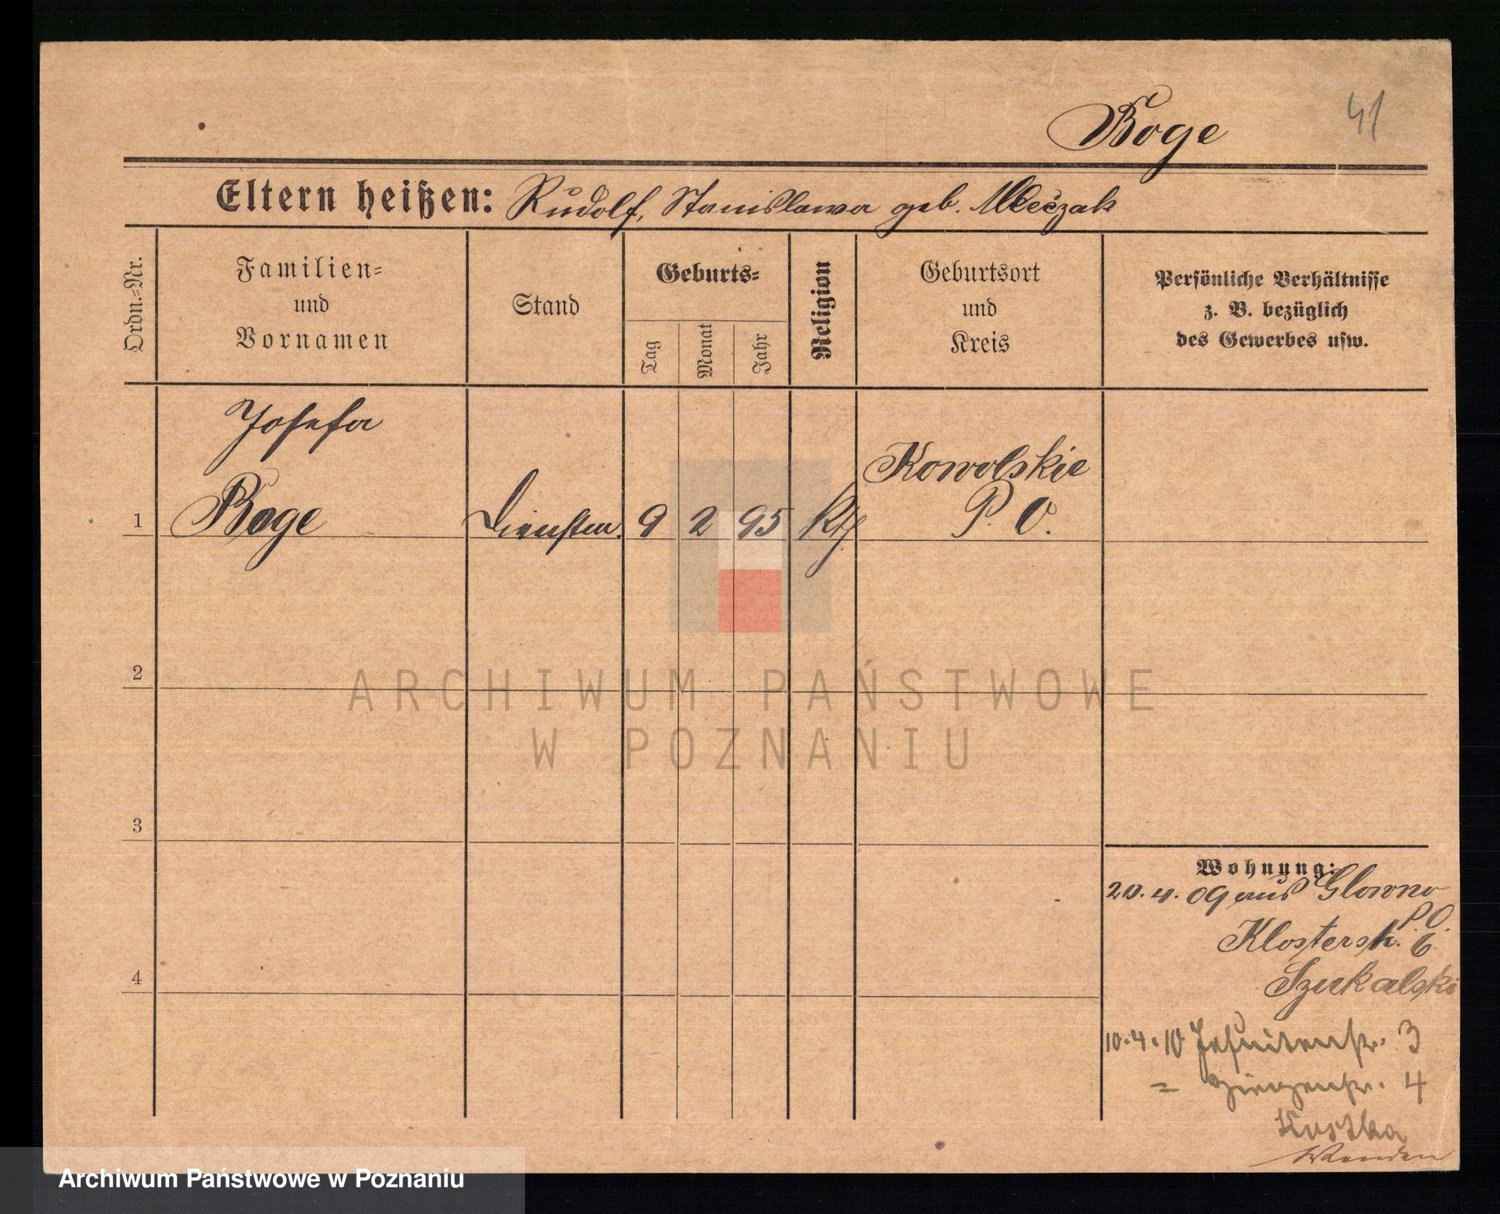 Boge
41
Eltern heißen: Rudolf, Stanislawa geb.
Ordn.-Nr.
Familien-
und
Vornamen
Stand
Geburts-
Tag
Monat
Jahr
Religion
Geburtsort
und
Kreis
Persönliche Verhältnisse
z. B. bezüglich
des Gewerbes usw.
Josefa
1 Boge Dienstm. 9 2 95 kth
Kowolskie
P. O.
2
3
4
ARCHIWUM PAŃSTWOWE
W POZNANIU
Wohnung:
20.4.09 aus Glowno
P. O.
Klosterstr. 6.
Szukalski
10.4.10 Jesuitenstr. 3
= 4
Kostka
Archiwum Państwowe w Poznaniu